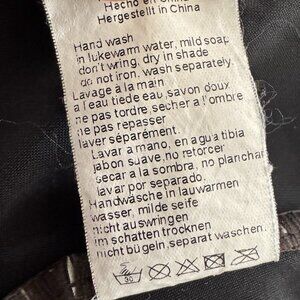 Hecho en China
Hergestellt in China
Hand wash
in lukewarm water, mild soap
don't wring, dry in shade
do not iron, wash separately.
Lavage à la main
a l'eau tiede eau savon doux
ne pas tordre, secher a l'ombre
ne pas repasser
laver séparément.
Lavar a mano, en agua tibia
jabon suave, no retorcer
secar a la sombra, no planchar
lavar por separado.
Handwäsche in lauwarmen
wasser, milde seife
nicht auswringen
im schatten trocknen
nicht bügeln, separat waschen.
30